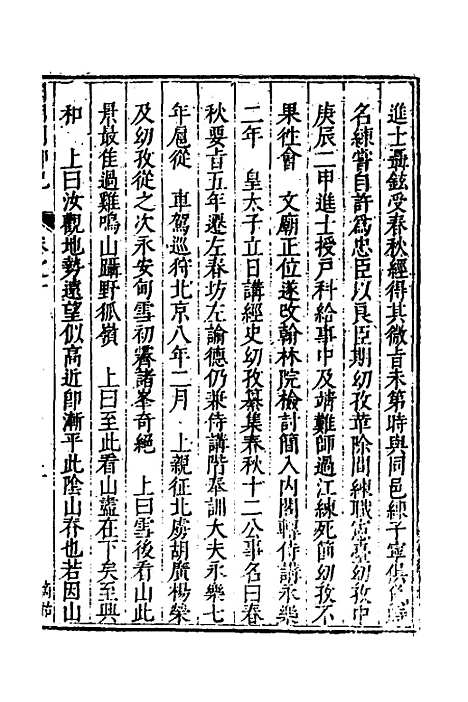 進士聶鉉受春秋經得其微旨未第時與同邑練子寧俱
名練嘗自許為忠臣以良臣期幼孜革除間練職憲臺幼孜中
庚辰二甲進士授戶科給事中及靖難師過江練死節幼孜不
果徃會　文廟正位遂改翰林院檢討簡入內閣轉侍講永樂
二年　皇太子立日講經史幼孜纂集春秋十二公事名曰春
秋要旨五年遷左春坊左諭德仍兼侍講階奉訓大夫永樂七
年扈從　車駕巡狩北京八年二月　上親征北虜胡廣楊榮
及幼孜從之次永安甸雪初霽諸峯奇絕　上曰雪後看山此
景最佳過雞鳴山躡野狐嶺　上曰至此看山盡在下矣至興
和　上曰汝觀地勢遠望似高近卽漸平此陰山脊也若因山